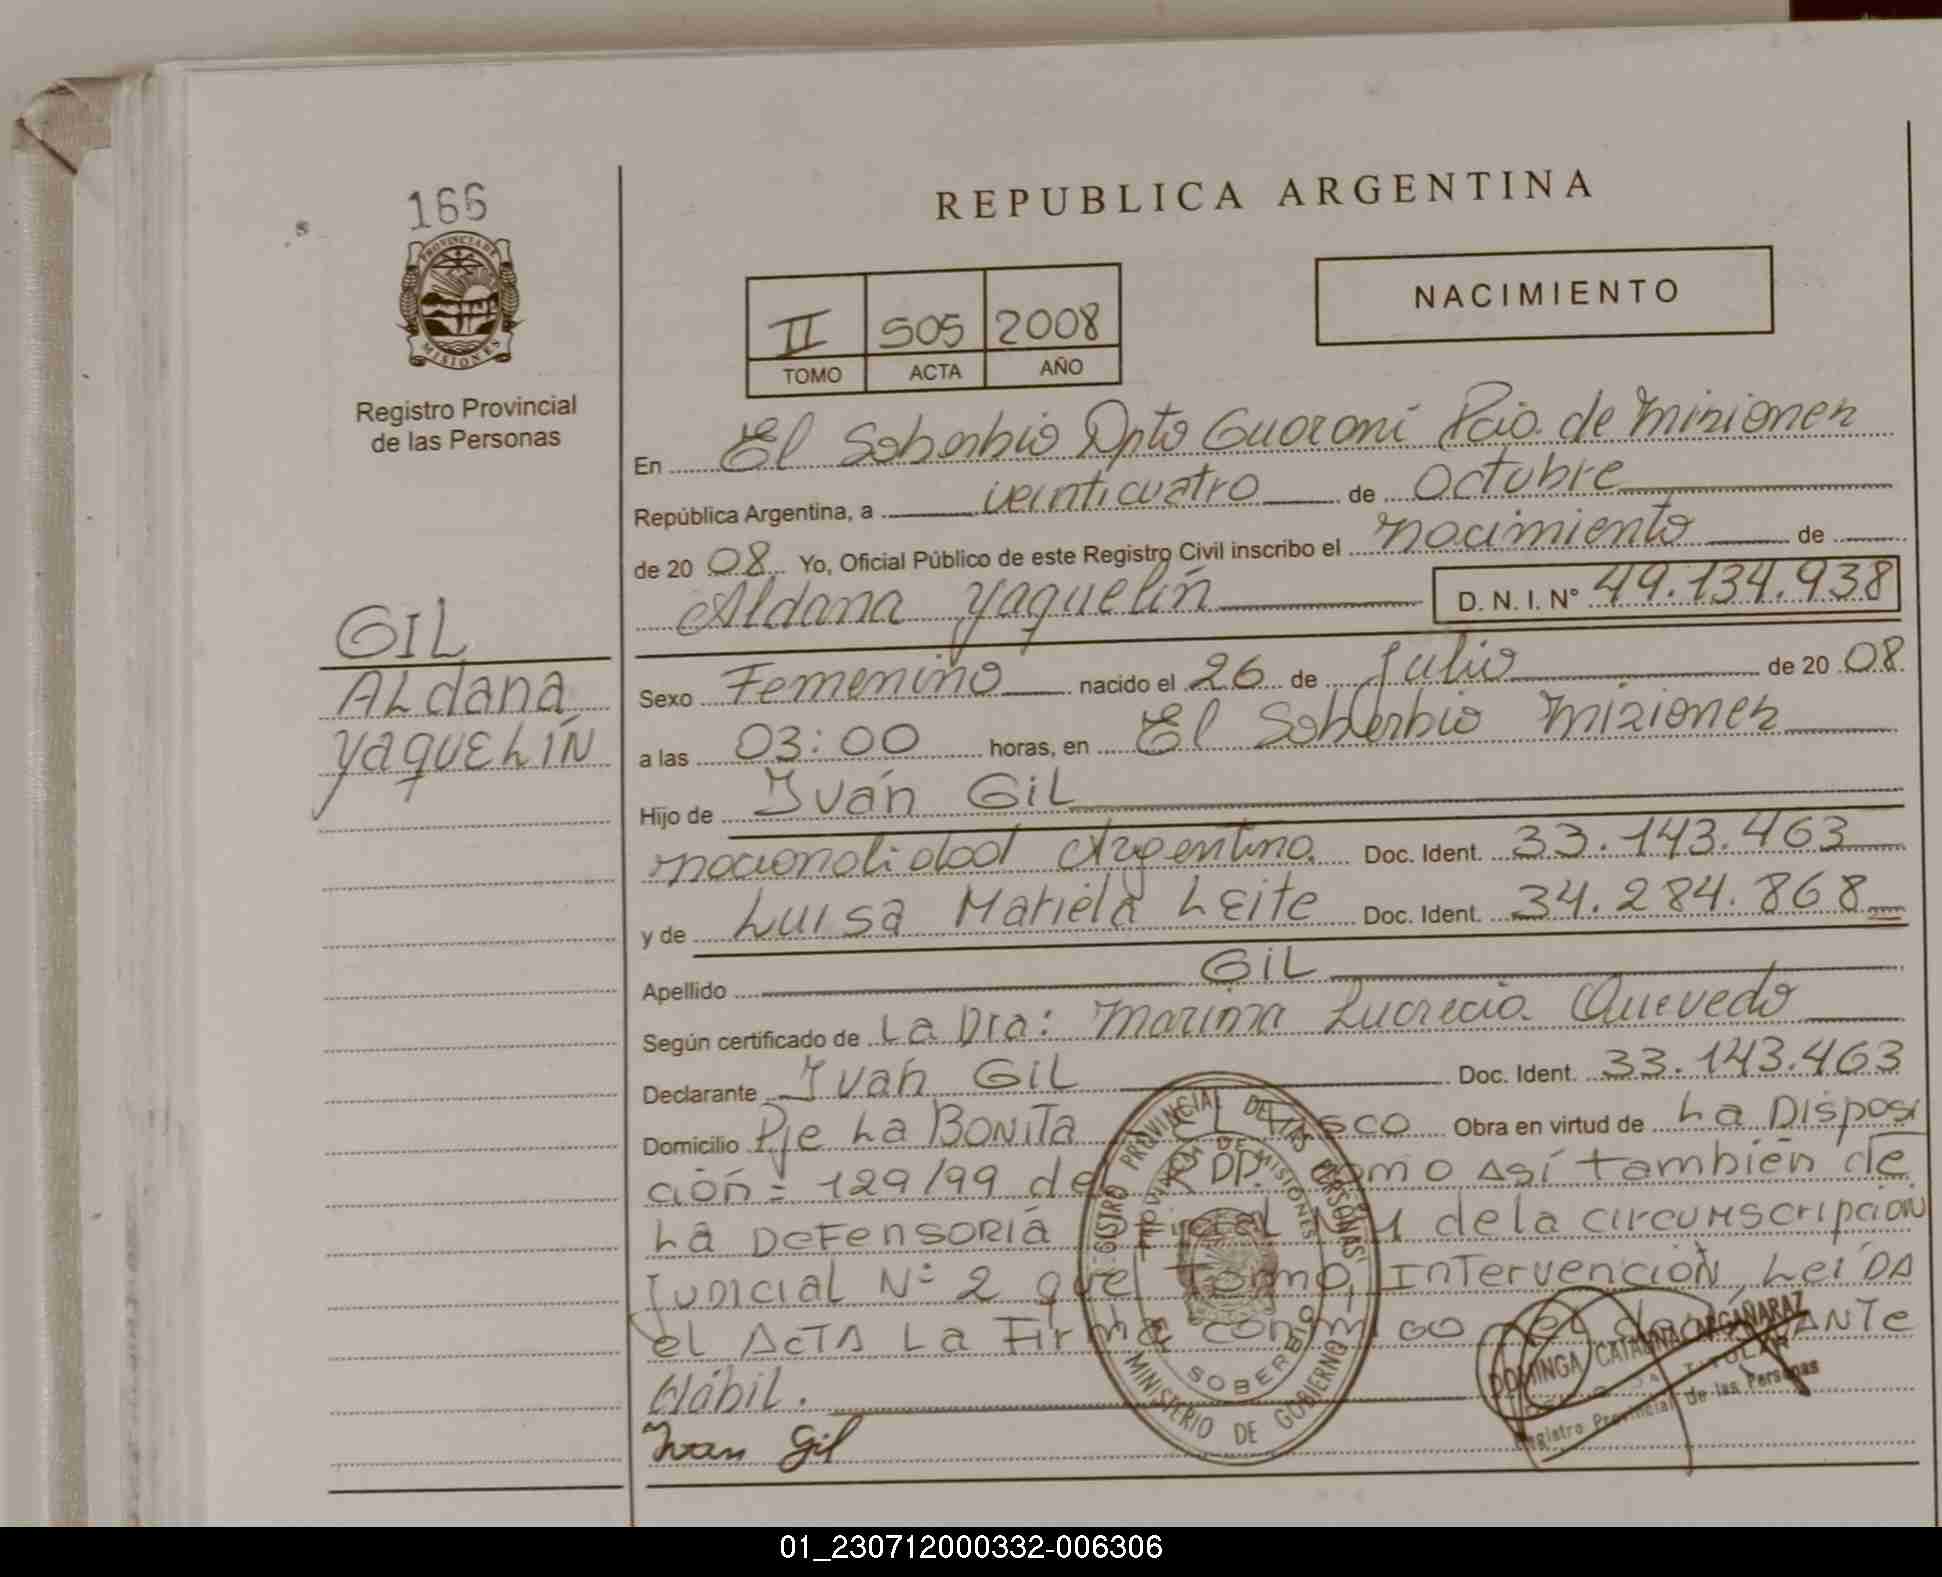 166
PROVINCIA DE
MISIONES
Registro Provincial
de las Personas
REPUBLICA ARGENTINA
II 505 2008
TOMO ACTA AÑO
NACIMIENTO
En El Soberbio Dpto Guaraní Pcia. de Misiones
República Argentina, a veinticuatro de Octubre
de 20 08 Yo, Oficial Público de este Registro Civil inscribo el nacimiento de
Aldana Yaquelín D. N. I. Nº 49.134.938
GIL
ALdana
YaquELÍN
Sexo Femenino nacido el 26 de Julio de 20 08
a las 03:00 horas, en El Soberbio Misiones
Hijo de Iván GiL
nacionalidad Argentina Doc. Ident. 33.143.463
y de Luisa Mariela Leite Doc. Ident. 34.284.868
Apellido GiL
Según certificado de La Dra: Marina Lucrecia Quevedo
Declarante Iván GiL Doc. Ident. 33.143.463
Domicilio Pje La BONiTa EL Fisco Obra en virtud de La Disposi
ción= 129/99 del RDP. como Así también de
La DeFensoría Oficial Nº 1 de la circunscripción
Judicial Nº 2 que Tomo InTervención LeiDA
el ACTA La Firma conmigo el declarANTe
Hábil.
Ivan Gil
REGISTRO PROVINCIAL DE LAS PERSONAS
PROVINCIA DE MISIONES
SOBERBIO
MINISTERIO DE GOBIERNO
DOMINGA CATALINA ARGAÑARAZ
TITULAR
Registro Provincial de las Personas
01_230712000332-006306